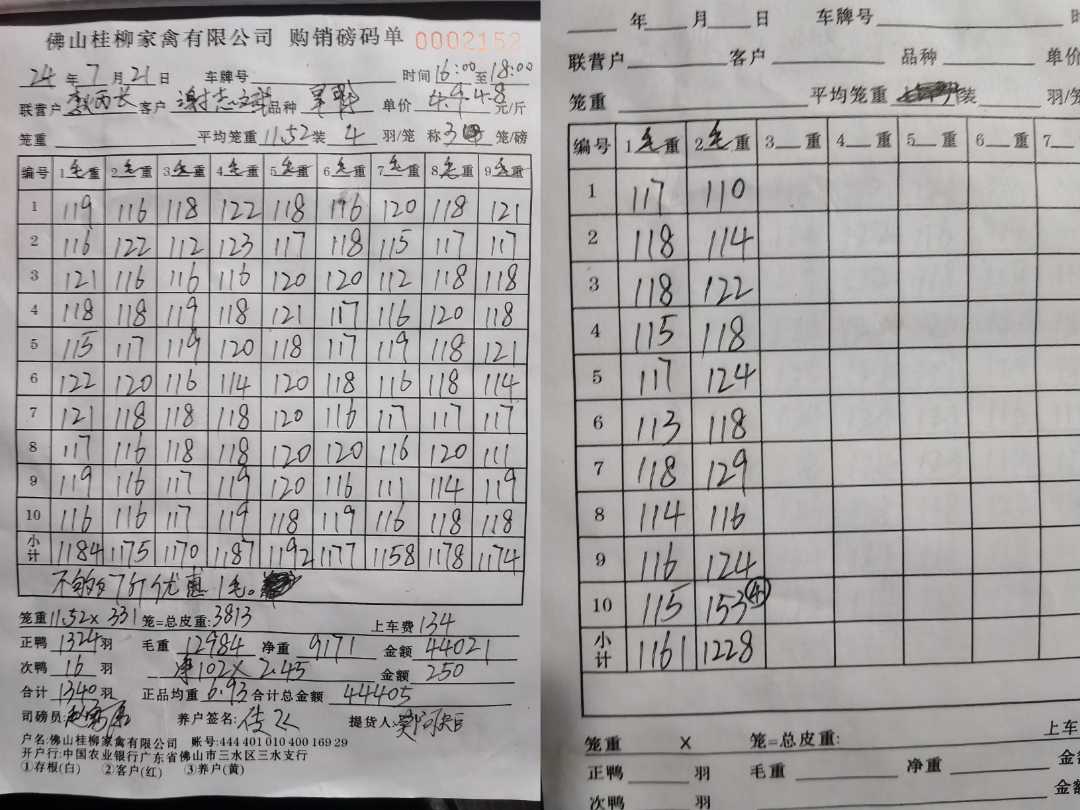 佛山桂柳家禽有限公司 购销磅码单 0002152
24年7月21日 车牌号 时间16:00至18:00
联营户 客户 品种 单价4.9 4.8元/斤
笼重 平均笼重11.52装4羽/笼 称3笼/磅
编号 1毛重 2毛重 3毛重 4毛重 5毛重 6毛重 7毛重 8毛重 9毛重
1 119 116 118 122 118 116 120 118 121
2 116 122 112 123 117 118 115 117 117
3 121 116 116 116 120 120 112 118 118
4 118 118 119 118 121 117 116 120 118
5 115 117 119 120 118 117 119 118 121
6 122 120 116 114 120 118 116 118 114
7 121 118 118 118 120 116 117 117 117
8 117 116 118 118 120 120 116 120 111
9 119 116 117 119 120 116 111 114 119
10 116 116 117 119 118 119 116 118 118
小计 1184 1175 1170 1187 1192 1177 1158 1178 1174
不够7斤优惠1毛。
笼重11.52×331笼=总皮重:3813 上车费134
正鸭1324羽 毛重12984 净重9171 金额44021
次鸭16羽 净102×2.45 金额250
合计1340羽 正品均重6.93 合计总金额44405
司磅员: 养户签名: 提货人:
户名:佛山桂柳家禽有限公司 账号:444 401 010 400 169 29
开户行:中国农业银行广东省佛山市三水区三水支行
①存根(白) ②客户(红) ③养户(黄)
年 月 日 车牌号
联营户 客户 品种 单价
笼重 平均笼重 装 羽/笼
编号 1毛重 2毛重 3 重 4 重 5 重 6 重 7
1 117 110
2 118 114
3 118 122
4 115 118
5 117 124
6 113 118
7 118 129
8 114 116
9 116 124
10 115 153④
小计 1161 1228
笼重 × 笼=总皮重: 上车
正鸭 羽 毛重 净重 金
次鸭 羽 金额